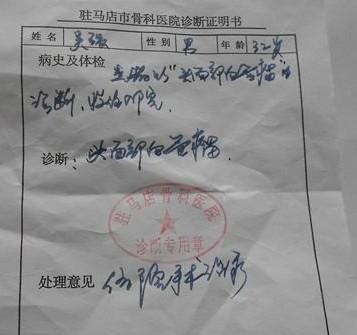 驻马店市骨科医院诊断证明书
姓名 性别 男 年龄 32岁
病史及体检 "头面部血管瘤"
诊断,收住我院
诊断:头面部血管瘤.
驻马店骨科医院
诊断专用章
处理意见 住院手术治疗